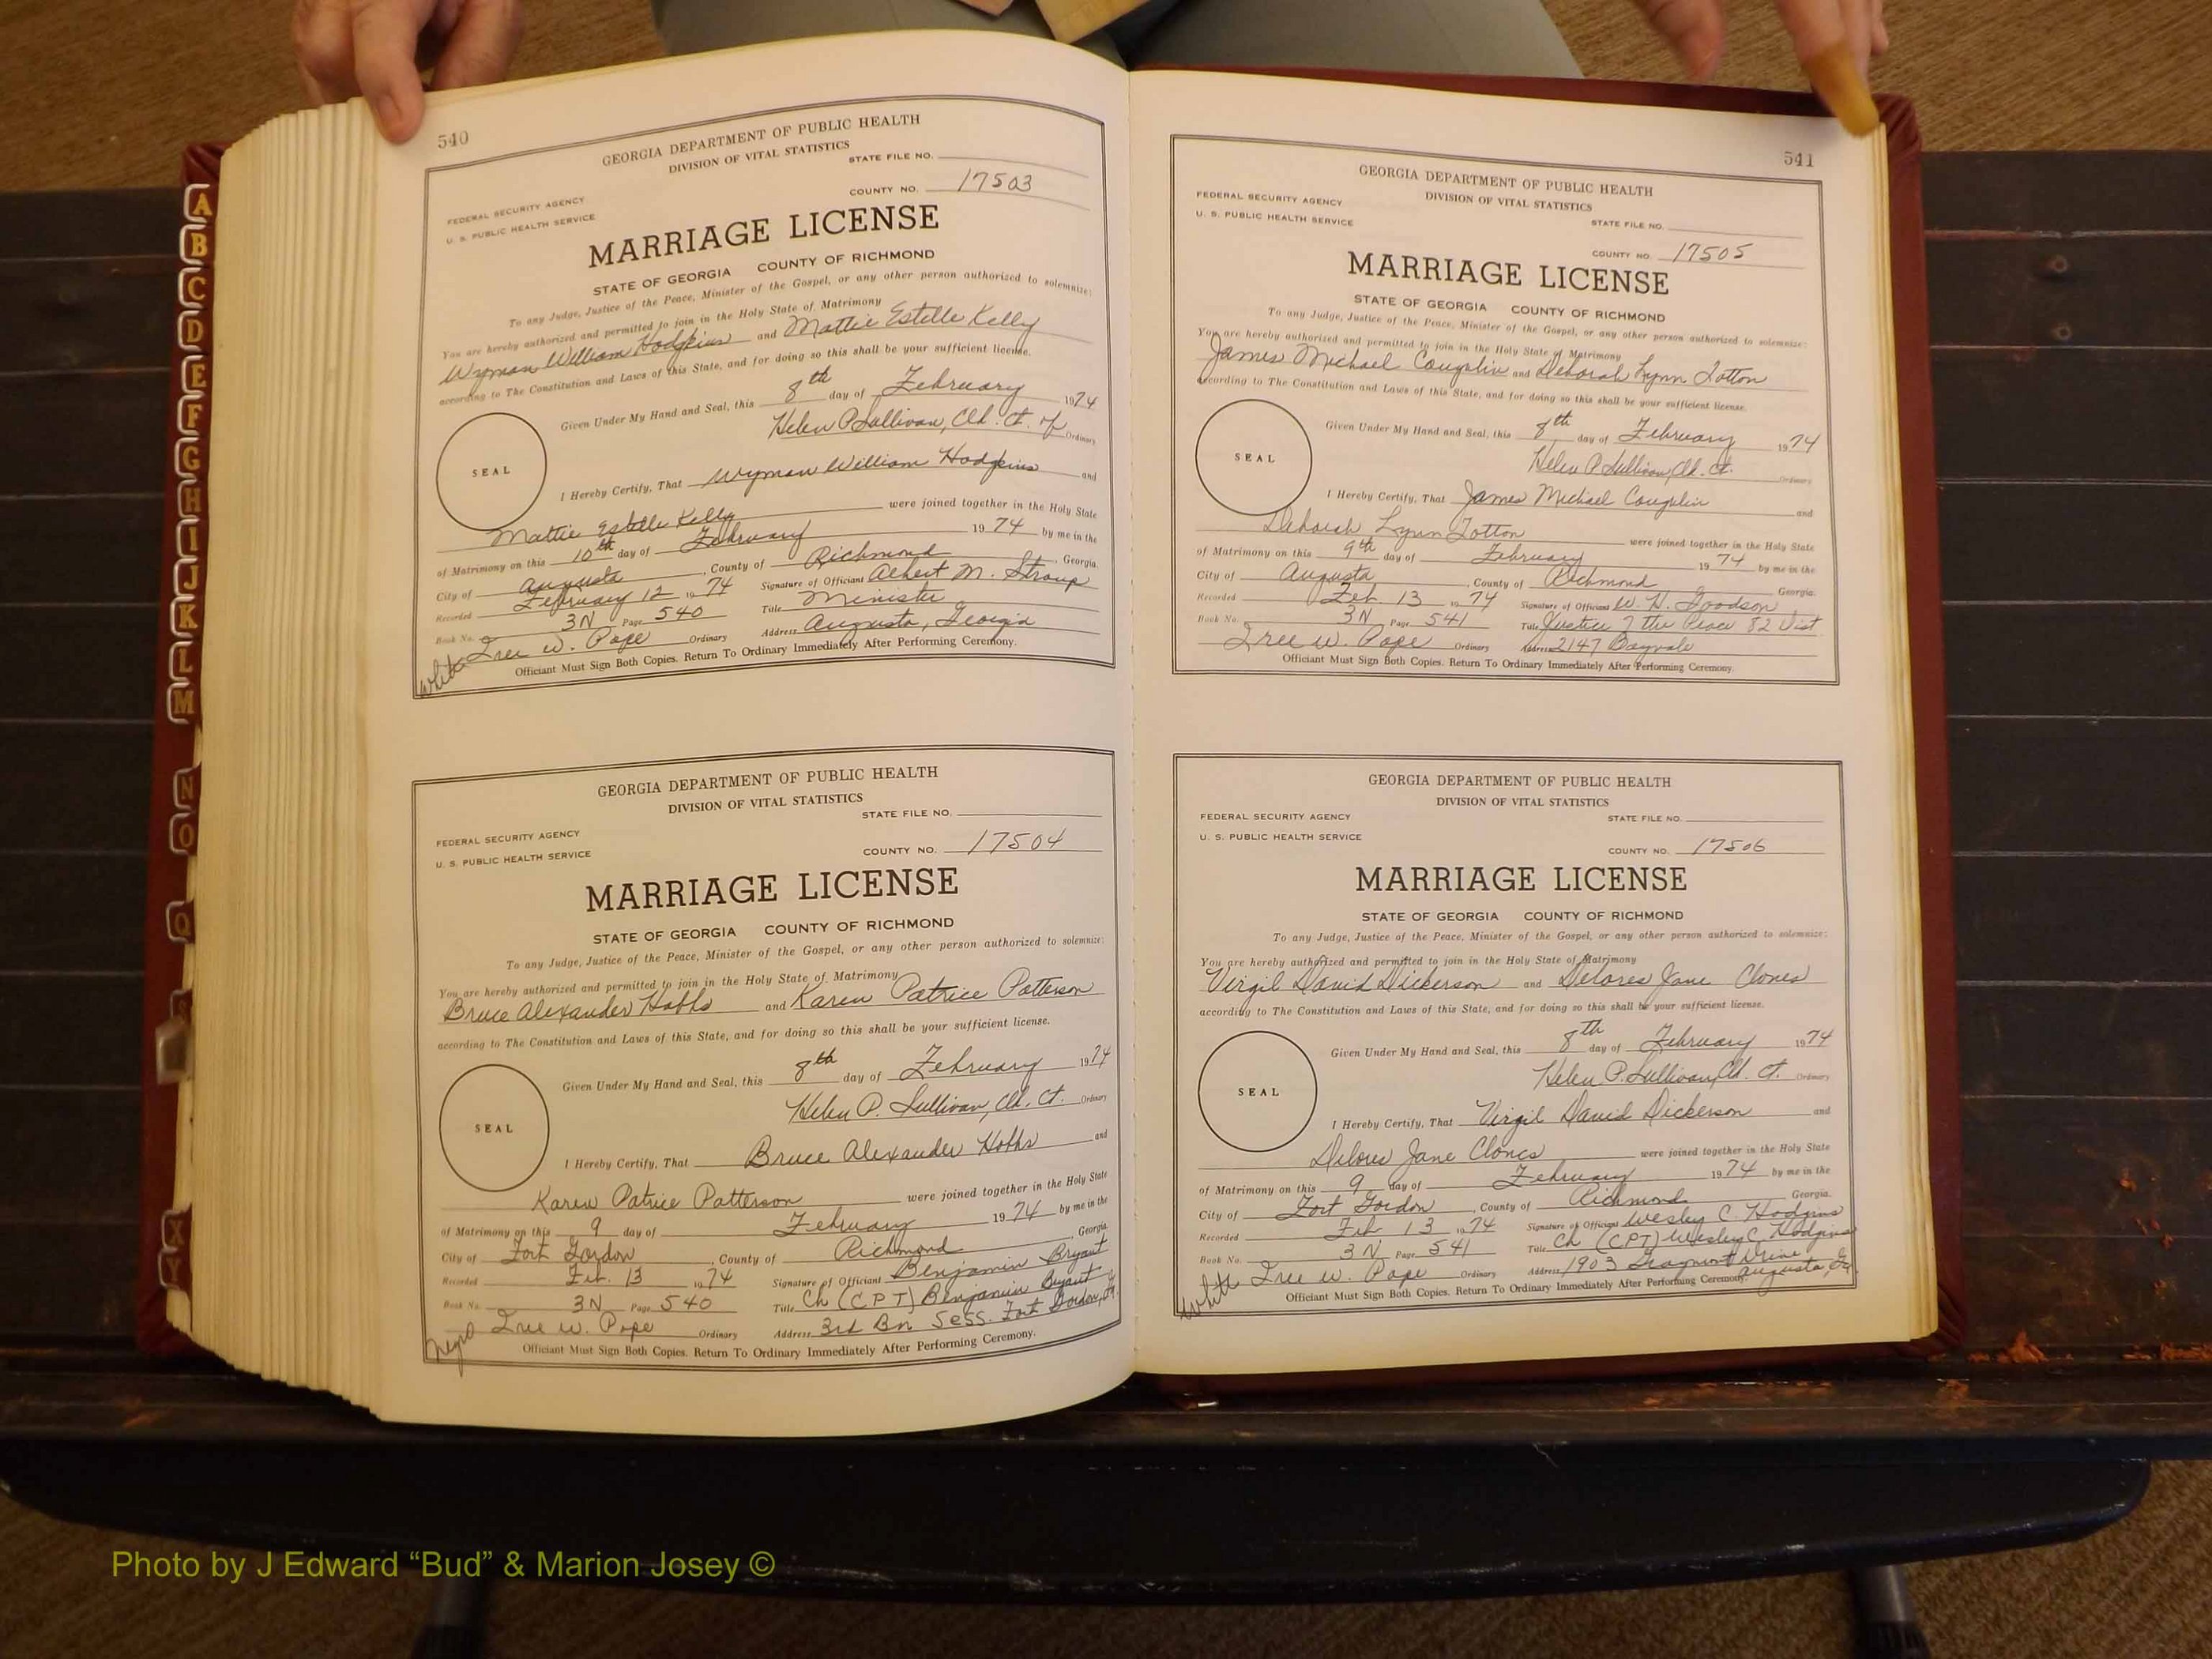 540
GEORGIA DEPARTMENT OF PUBLIC HEALTH
DIVISION OF VITAL STATISTICS
STATE FILE NO.
COUNTY NO. 17503
FEDERAL SECURITY AGENCY
U. S. PUBLIC HEALTH SERVICE
MARRIAGE LICENSE
STATE OF GEORGIA COUNTY OF RICHMOND
To any Judge, Justice of the Peace, Minister of the Gospel, or any other person authorized to solemnize:
You are hereby authorized and permitted to join in the Holy State of Matrimony
Wyman William Hodgkins and Mattie Estelle Kelly
according to The Constitution and Laws of this State, and for doing so this shall be your sufficient license.
Given Under My Hand and Seal, this 8th day of February 1974
Helen P. Sullivan, Clk. Ct. of Ordinary
SEAL
I Hereby Certify, That Wyman William Hodgkins and
Mattie Estelle Kelly were joined together in the Holy State
of Matrimony on this 10th day of February 1974 by me in the
City of Augusta, County of Richmond, Georgia.
Recorded February 12 1974 Signature of Officiant Albert M. Stroup
Book No. 3N Page 540 Title Minister
Iree W. Pope Ordinary Address Augusta, Georgia
White
Officiant Must Sign Both Copies. Return To Ordinary Immediately After Performing Ceremony.
GEORGIA DEPARTMENT OF PUBLIC HEALTH
DIVISION OF VITAL STATISTICS
STATE FILE NO.
FEDERAL SECURITY AGENCY
U. S. PUBLIC HEALTH SERVICE
COUNTY NO. 17504
MARRIAGE LICENSE
STATE OF GEORGIA COUNTY OF RICHMOND
To any Judge, Justice of the Peace, Minister of the Gospel, or any other person authorized to solemnize:
You are hereby authorized and permitted to join in the Holy State of Matrimony
Bruce Alexander Hobbs and Karen Patrice Patterson
according to The Constitution and Laws of this State, and for doing so this shall be your sufficient license.
Given Under My Hand and Seal, this 8th day of February 1974
Helen P. Sullivan, Clk. Ct. Ordinary
SEAL
I Hereby Certify, That Bruce Alexander Hobbs and
Karen Patrice Patterson were joined together in the Holy State
of Matrimony on this 9 day of February 1974 by me in the
City of Fort Gordon, County of Richmond, Georgia.
Recorded Feb. 13 1974 Signature of Officiant Benjamin Bryant
Book No. 3N Page 540 Title Ch (CPT) Benjamin Bryant
Iree W. Pope Ordinary Address 3rd Bn Sess. Fort Gordon,
Negro
Officiant Must Sign Both Copies. Return To Ordinary Immediately After Performing Ceremony.
541
GEORGIA DEPARTMENT OF PUBLIC HEALTH
DIVISION OF VITAL STATISTICS
FEDERAL SECURITY AGENCY
U. S. PUBLIC HEALTH SERVICE
STATE FILE NO.
COUNTY NO. 17505
MARRIAGE LICENSE
STATE OF GEORGIA COUNTY OF RICHMOND
To any Judge, Justice of the Peace, Minister of the Gospel, or any other person authorized to solemnize:
You are hereby authorized and permitted to join in the Holy State of Matrimony
James Michael Coughlin and Deborah Lynn Totton
according to The Constitution and Laws of this State, and for doing so this shall be your sufficient license.
Given Under My Hand and Seal, this 8th day of February 1974
Helen P. Sullivan, Clk. Ct. Ordinary
SEAL
I Hereby Certify, That James Michael Coughlin and
Deborah Lynn Totton were joined together in the Holy State
of Matrimony on this 9th day of February 1974 by me in the
City of Augusta, County of Richmond Georgia.
Recorded Feb. 13 1974 Signature of Officiant W. H. Goodson
Book No. 3N Page 541 Title Justice of the Peace 82 Dist
Iree W. Pope Ordinary Address 2147 Bayvale
Officiant Must Sign Both Copies. Return To Ordinary Immediately After Performing Ceremony.
GEORGIA DEPARTMENT OF PUBLIC HEALTH
DIVISION OF VITAL STATISTICS
FEDERAL SECURITY AGENCY
STATE FILE NO.
U. S. PUBLIC HEALTH SERVICE
COUNTY NO. 17506
MARRIAGE LICENSE
STATE OF GEORGIA COUNTY OF RICHMOND
To any Judge, Justice of the Peace, Minister of the Gospel, or any other person authorized to solemnize:
You are hereby authorized and permitted to join in the Holy State of Matrimony
Virgil David Dickerson and Delores Jane Clones
according to The Constitution and Laws of this State, and for doing so this shall be your sufficient license.
Given Under My Hand and Seal, this 8th day of February 1974
Helen P. Sullivan, Clk. Ct. Ordinary
SEAL
I Hereby Certify, That Virgil David Dickerson and
Delores Jane Clones were joined together in the Holy State
of Matrimony on this 9 day of February 1974 by me in the
City of Fort Gordon, County of Richmond Georgia.
Recorded Feb 13 1974 Signature of Officiant Wesley C. Hodgins
Book No. 3N Page 541 Title Ch (CPT) Wesley C. Hodgins
Iree W. Pope Ordinary Address 1903 Drive Augusta, Ga
White
Officiant Must Sign Both Copies. Return To Ordinary Immediately After Performing Ceremony.
A
B
C
D
E
F
G
H
I
J
K
L
M
N
O
Q
S
X
Y
Photo by J Edward “Bud” & Marion Josey ©